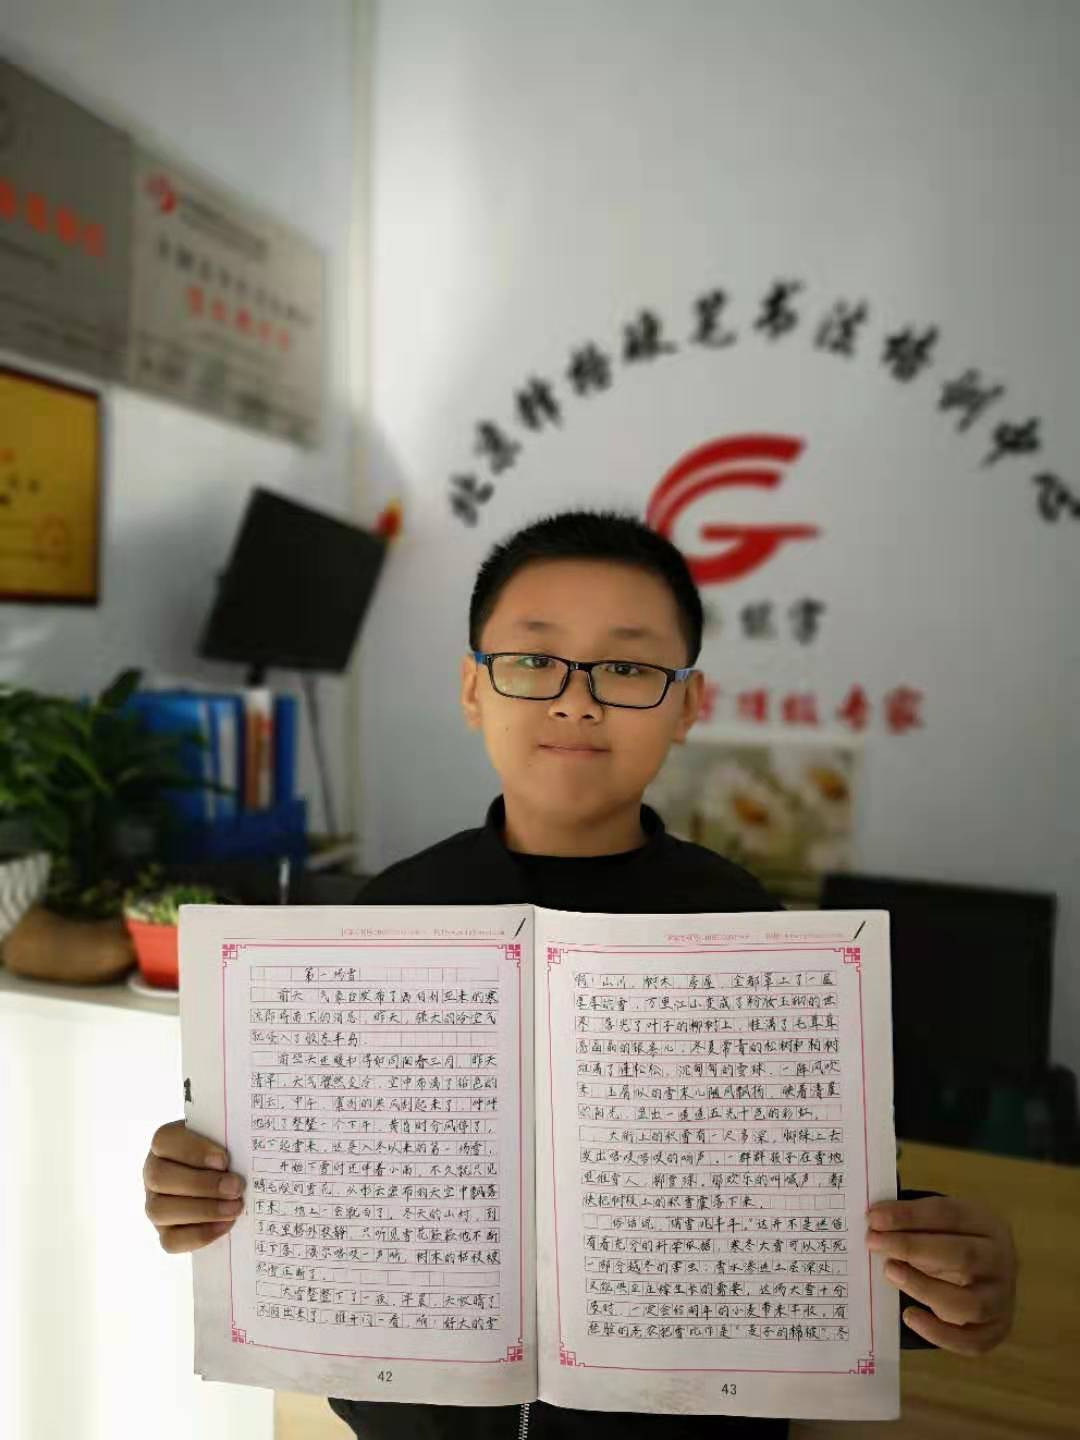 北京梓格硬笔书法培训中心
练字
字顶级专家
第一场雪
前天,气象台发布了西伯利亚来的寒
流即将南下的消息,昨天,强大的冷空气
就侵入了胶东半岛。
前些天还暖和得如同阳春三月,昨天
清早,天气骤然变冷,空中布满了铅色的
阴云,中午,凛冽的寒风刮起来了,呼呼
地刮了整整一个下午,黄昏时分风停了,
就下起雪来,这是入冬以来的第一场雪,
开始下雪时还伴着小雨,不久就只见
鹅毛般的雪花,从彤云密布的天空中飘落
下来,地上一会就白了,冬天的山村,到
了夜里格外寂静,只听见雪花簌簌地不断
往下落,偶尔咯吱一声响,树木的枯枝被
积雪压断了,
大雪整整下了一夜,早晨,天放晴了
太阳出来了,推开门一看,嗬!好大的雪
42
啊!山川,树木,房屋,全都罩上了一层
厚厚的雪,万里江山变成了粉妆玉砌的世
界,落光了叶子的柳树上,挂满了毛茸茸
亮晶晶的银条儿,冬夏常青的松树和柏树
堆满了蓬松松,沉甸甸的雪球,一阵风吹
来,玉屑似的雪末儿随风飘扬,映着清晨
的阳光,显出一道道五光十色的彩虹,
大街上的积雪有一尺多深,脚踩上去
发出咯吱咯吱的响声,一群群孩子在雪地
里堆雪人,掷雪球,那欢乐的叫喊声,都
快把树枝上的积雪震落下来,
俗话说,"瑞雪兆丰年,"这并不是迷信
有着充分的科学依据,寒冬大雪可以冻死
一部分越冬的害虫;雪水渗进土层深处,
又能供应庄稼生长的需要,这场大雪十分
及时,一定会给明年的小麦带来丰收,有
经验的老农把雪比作是"麦子的棉被",冬
43